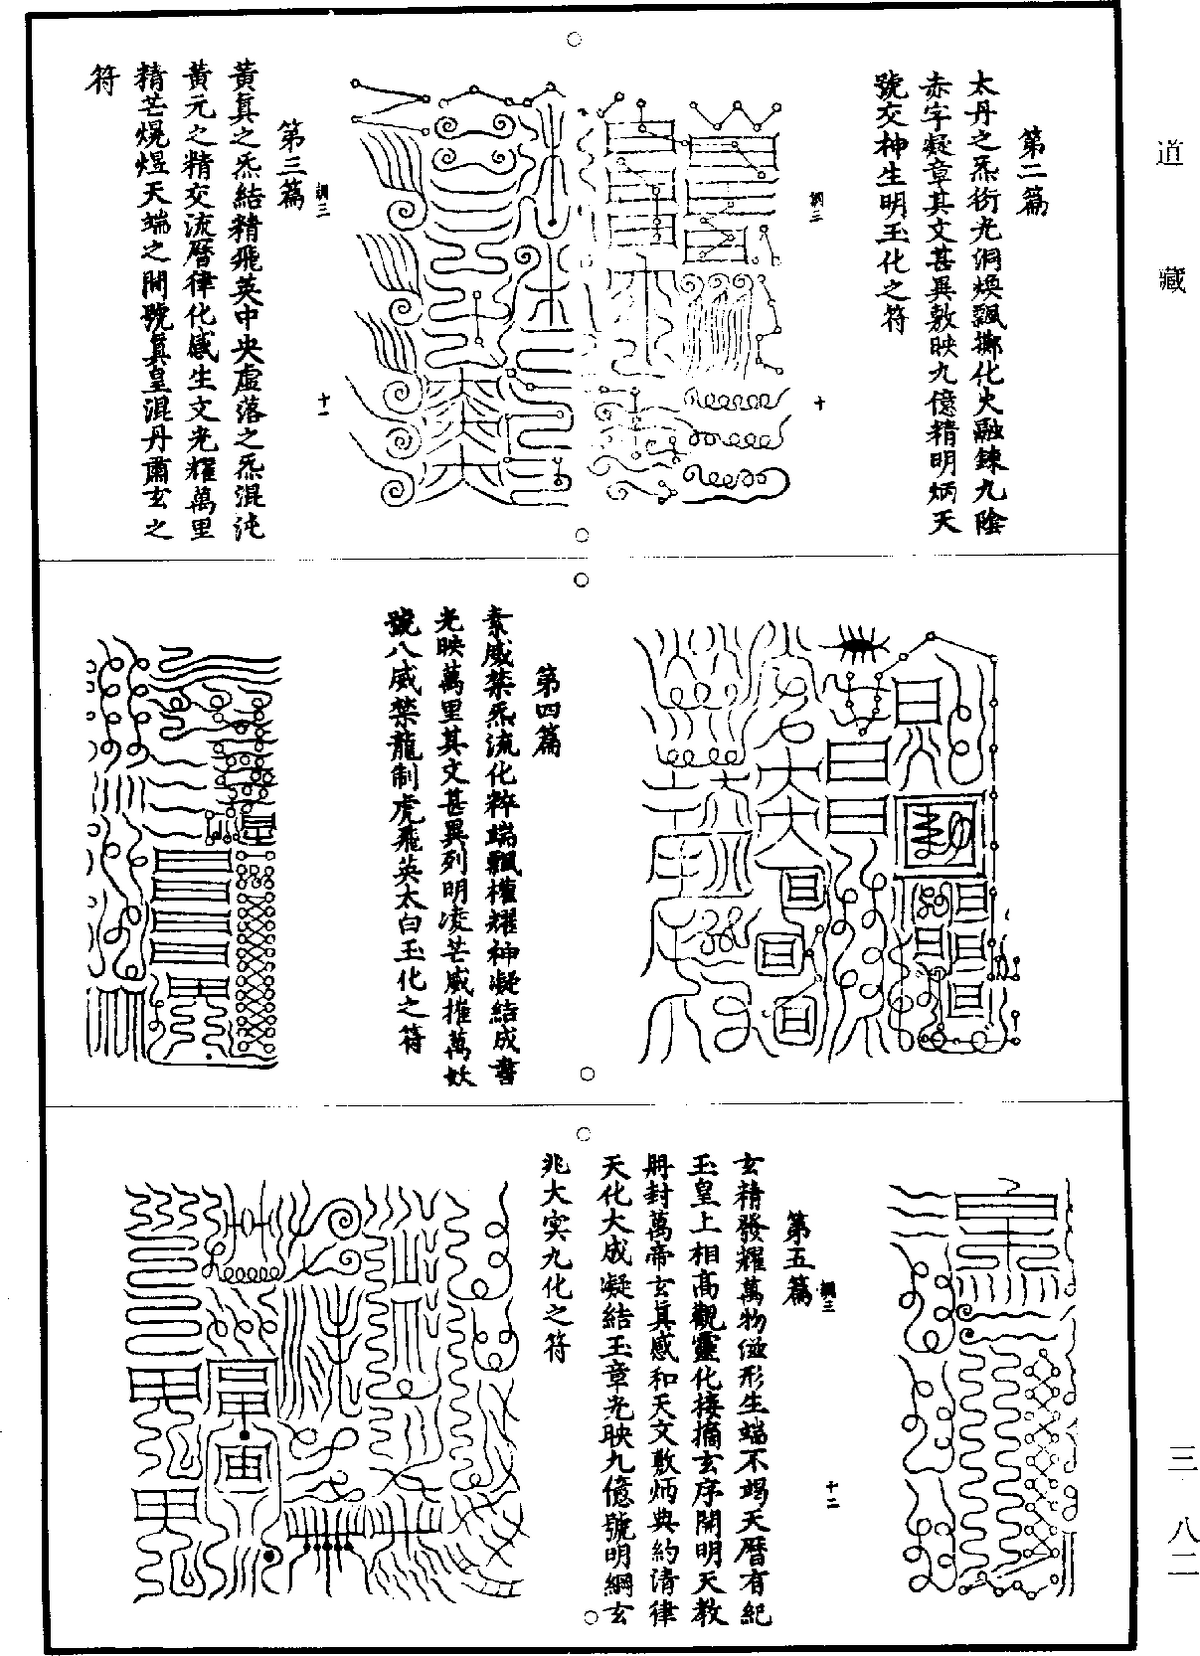 道藏
第二篇
太丹之炁衔光洞煥飄擲化火融鍊九陰
赤字凝章其文甚異敷映九億精明炳天
號交神生明玉化之符
綱三
十
綱三
十一
第三篇
黃真之炁結精飛英中央虛落之炁混沌
黃元之精交流曆律化感生文光耀萬里
精芒熀煜天端之間號真皇混丹肅玄之
符
第四篇
素威禁炁流化粹端飄權耀神凝結成書
光映萬里其文甚異列明凌芒威摧萬妖
號八威禁龍制虎飛英太白玉化之符
綱三
十二
第五篇
玄精發耀萬物孳形生端不竭天曆有紀
玉皇上相高觀靈化接摘玄序開明天教
冊封萬帝玄真感和天文敷炳典約清律
天化大成凝結玉章光映九億號明綱玄
兆大寅九化之符
三 八二